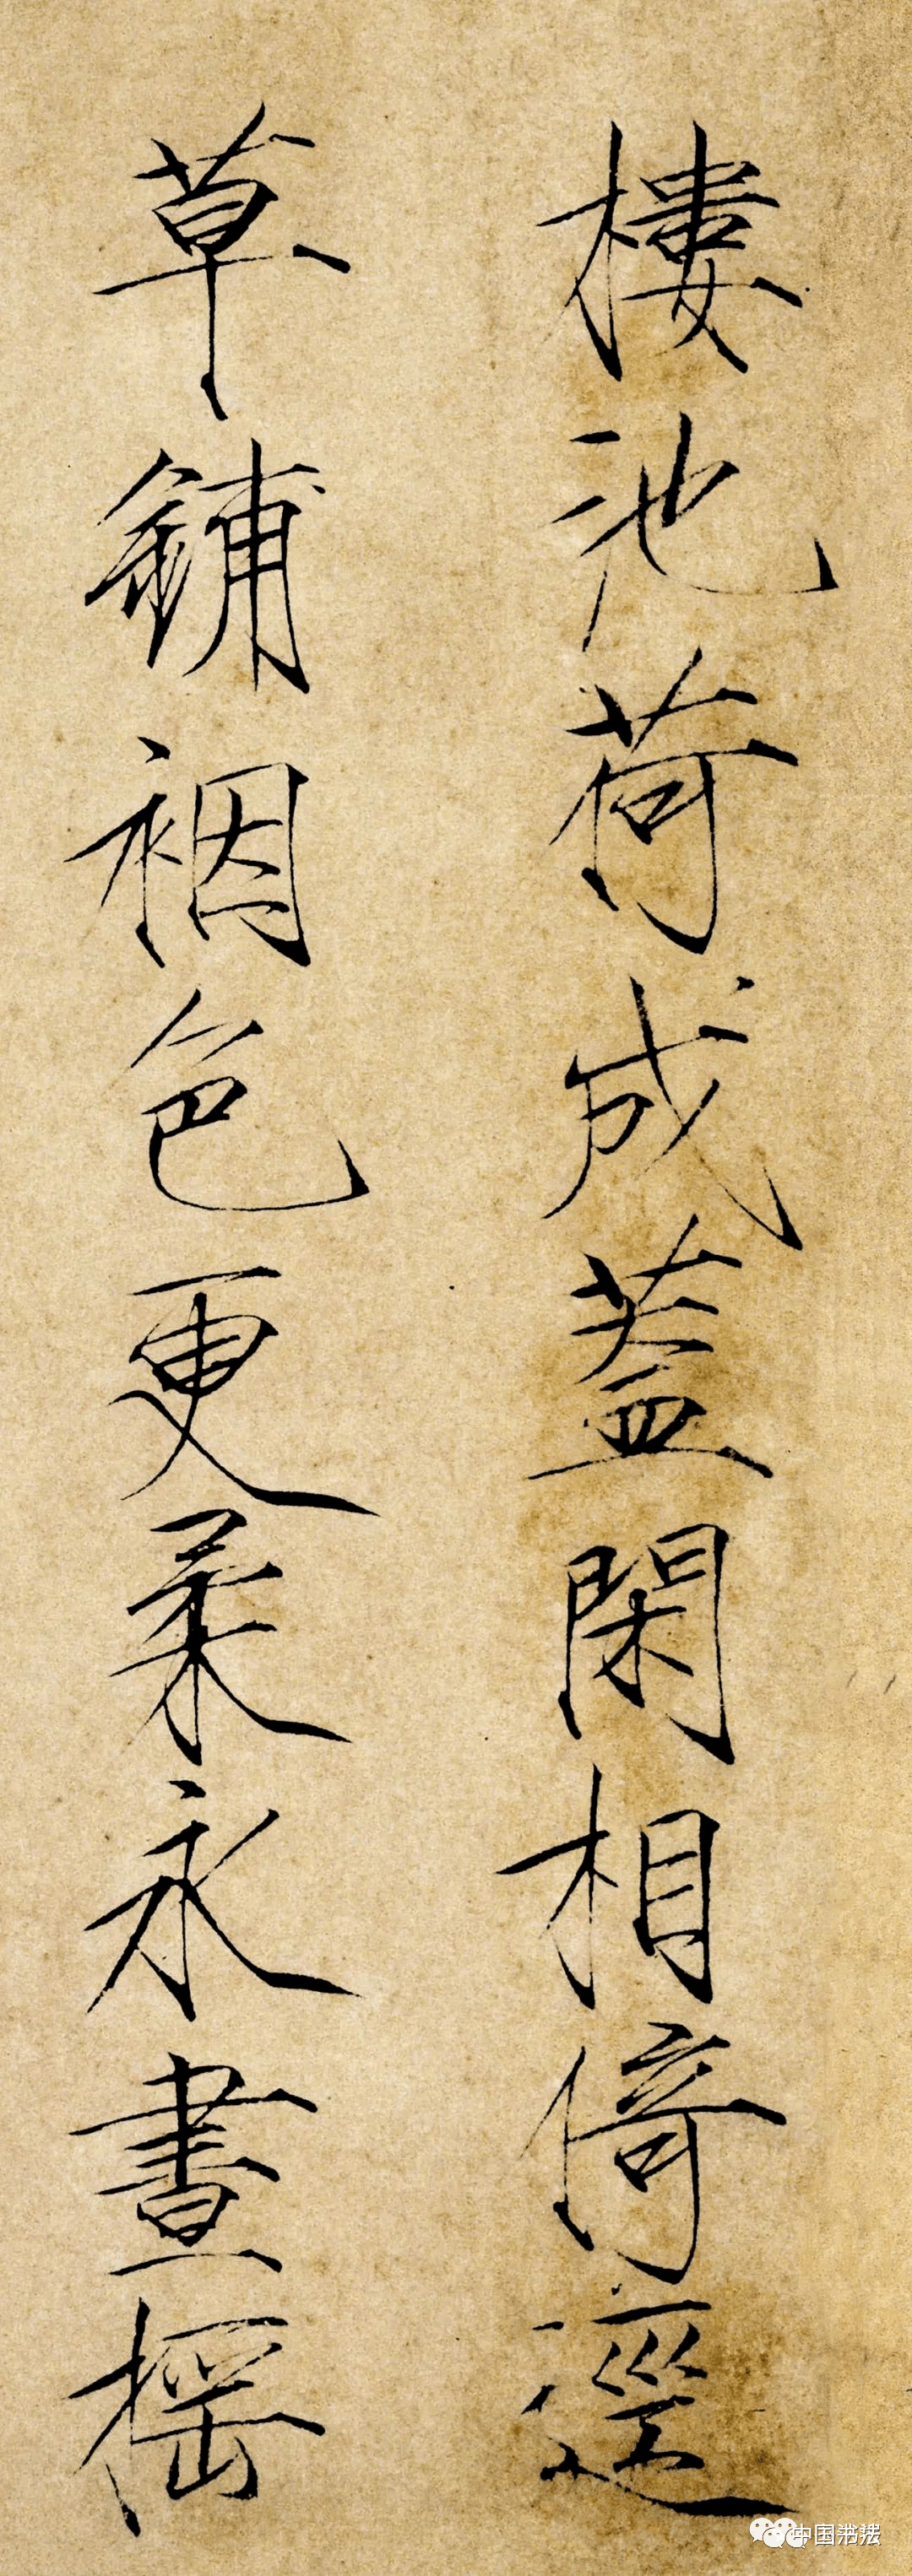 楼池荷成蓋閑相倚逕
草鋪裀色更柔永晝搖
中国书法